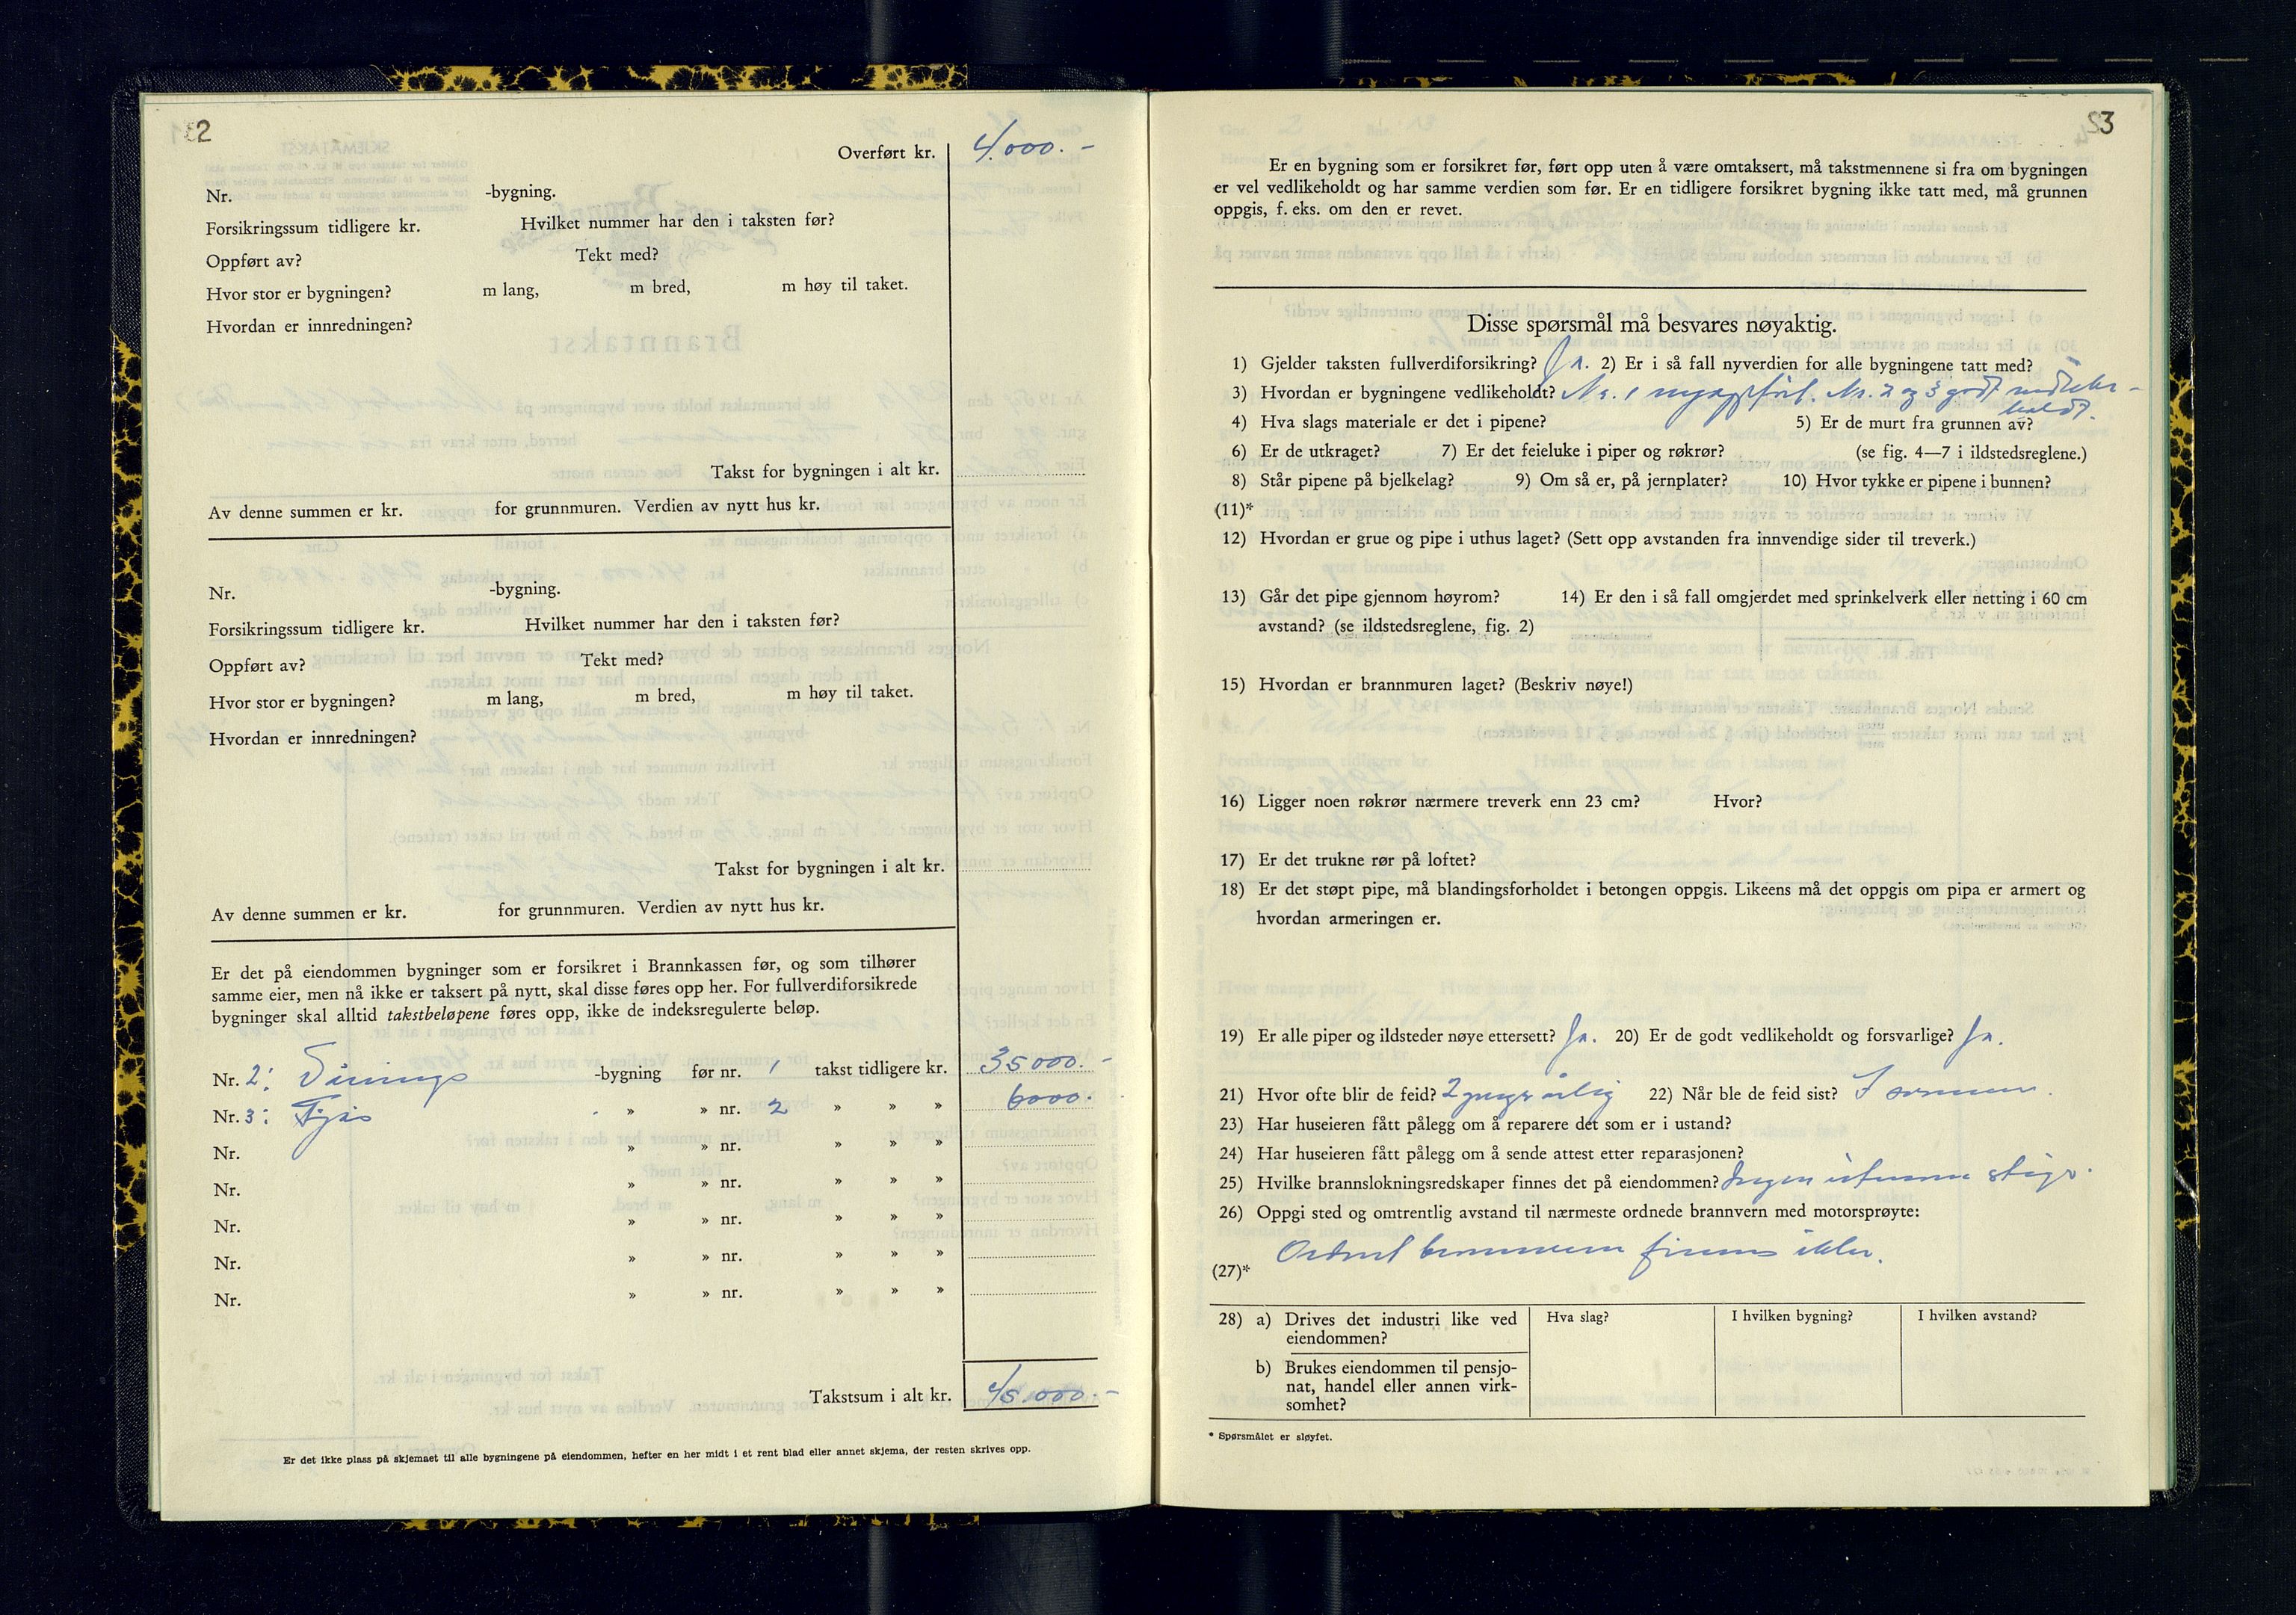 52
Overført kr. 4.000.-
Nr. -bygning.
Forsikringssum tidligere kr. Hvilket nummer har den i taksten før?
Oppført av? Tekt med?
Hvor stor er bygningen? m lang, m bred, m høy til taket.
Hvordan er innredningen?
Takst for bygningen i alt kr.
Av denne summen er kr. for grunnmuren. Verdien av nytt hus kr.
Nr. -bygning.
Forsikringssum tidligere kr. Hvilket nummer har den i taksten før?
Oppført av? Tekt med?
Hvor stor er bygningen? m lang, m bred, m høy til taket.
Hvordan er innredningen?
Takst for bygningen i alt kr.
Av denne summen er kr. for grunnmuren. Verdien av nytt hus kr.
Er det på eiendommen bygninger som er forsikret i Brannkassen før, og som tilhører
samme eier, men nå ikke er taksert på nytt, skal disse føres opp her. For fullverdiforsikrede
bygninger skal alltid takstbeløpene føres opp, ikke de indeksregulerte beløp.
Nr. 2: Vånings -bygning før nr. 1 takst tidligere kr. 35000.-
Nr. 3: Fjøs » » nr. 2 » » » 6000.
Nr. » » nr. » » »
Nr. » » nr. » » »
Nr. » » nr. » » »
Nr. » » nr. » » »
Nr. » » nr. » » »
Takstsum i alt kr. 45.000.-
Er det ikke plass på skjemaet til alle bygningene på eiendommen, hefter en her midt i et rent blad eller annet skjema, der resten skrives opp.
53
Er en bygning som er forsikret før, ført opp uten å være omtaksert, må takstmennene si fra om bygningen
er vel vedlikeholdt og har samme verdien som før. Er en tidligere forsikret bygning ikke tatt med, må grunnen
oppgis, f. eks. om den er revet.
Disse spørsmål må besvares nøyaktig.
1) Gjelder taksten fullverdiforsikring? Ja. 2) Er i så fall nyverdien for alle bygningene tatt med?
3) Hvordan er bygningene vedlikeholdt? Nr. 1 nyoppført. Nr. 2 og 3 godt vedlike-
holdt.
4) Hva slags materiale er det i pipene? 5) Er de murt fra grunnen av?
6) Er de utkraget? 7) Er det feieluke i piper og røkrør? (se fig. 4—7 i ildstedsreglene.)
8) Står pipene på bjelkelag? 9) Om så er, på jernplater? 10) Hvor tykke er pipene i bunnen?
(11)*
12) Hvordan er grue og pipe i uthus laget? (Sett opp avstanden fra innvendige sider til treverk.)
13) Går det pipe gjennom høyrom? 14) Er den i så fall omgjerdet med sprinkelverk eller netting i 60 cm
avstand? (se ildstedsreglene, fig. 2)
15) Hvordan er brannmuren laget? (Beskriv nøye!)
16) Ligger noen røkrør nærmere treverk enn 23 cm? Hvor?
17) Er det trukne rør på loftet?
18) Er det støpt pipe, må blandingsforholdet i betongen oppgis. Likeens må det oppgis om pipa er armert og
hvordan armeringen er.
19) Er alle piper og ildsteder nøye ettersett? Ja. 20) Er de godt vedlikeholdt og forsvarlige? Ja.
21) Hvor ofte blir de feid? 2 ganger årlig 22) Når ble de feid sist? I sommer.
23) Har huseieren fått pålegg om å reparere det som er i ustand?
24) Har huseieren fått pålegg om å sende attest etter reparasjonen?
25) Hvilke brannslokningsredskaper finnes det på eiendommen? Ingen utenom stige.
26) Oppgi sted og omtrentlig avstand til nærmeste ordnede brannvern med motorsprøyte:
Ordnet brannvern finnes ikke.
(27)*
28) a) Drives det industri like ved Hva slag? I hvilken bygning? I hvilken avstand?
eiendommen?
b) Brukes eiendommen til pensjo-
nat, handel eller annen virk-
somhet?
* Spørsmålet er sløyfet.